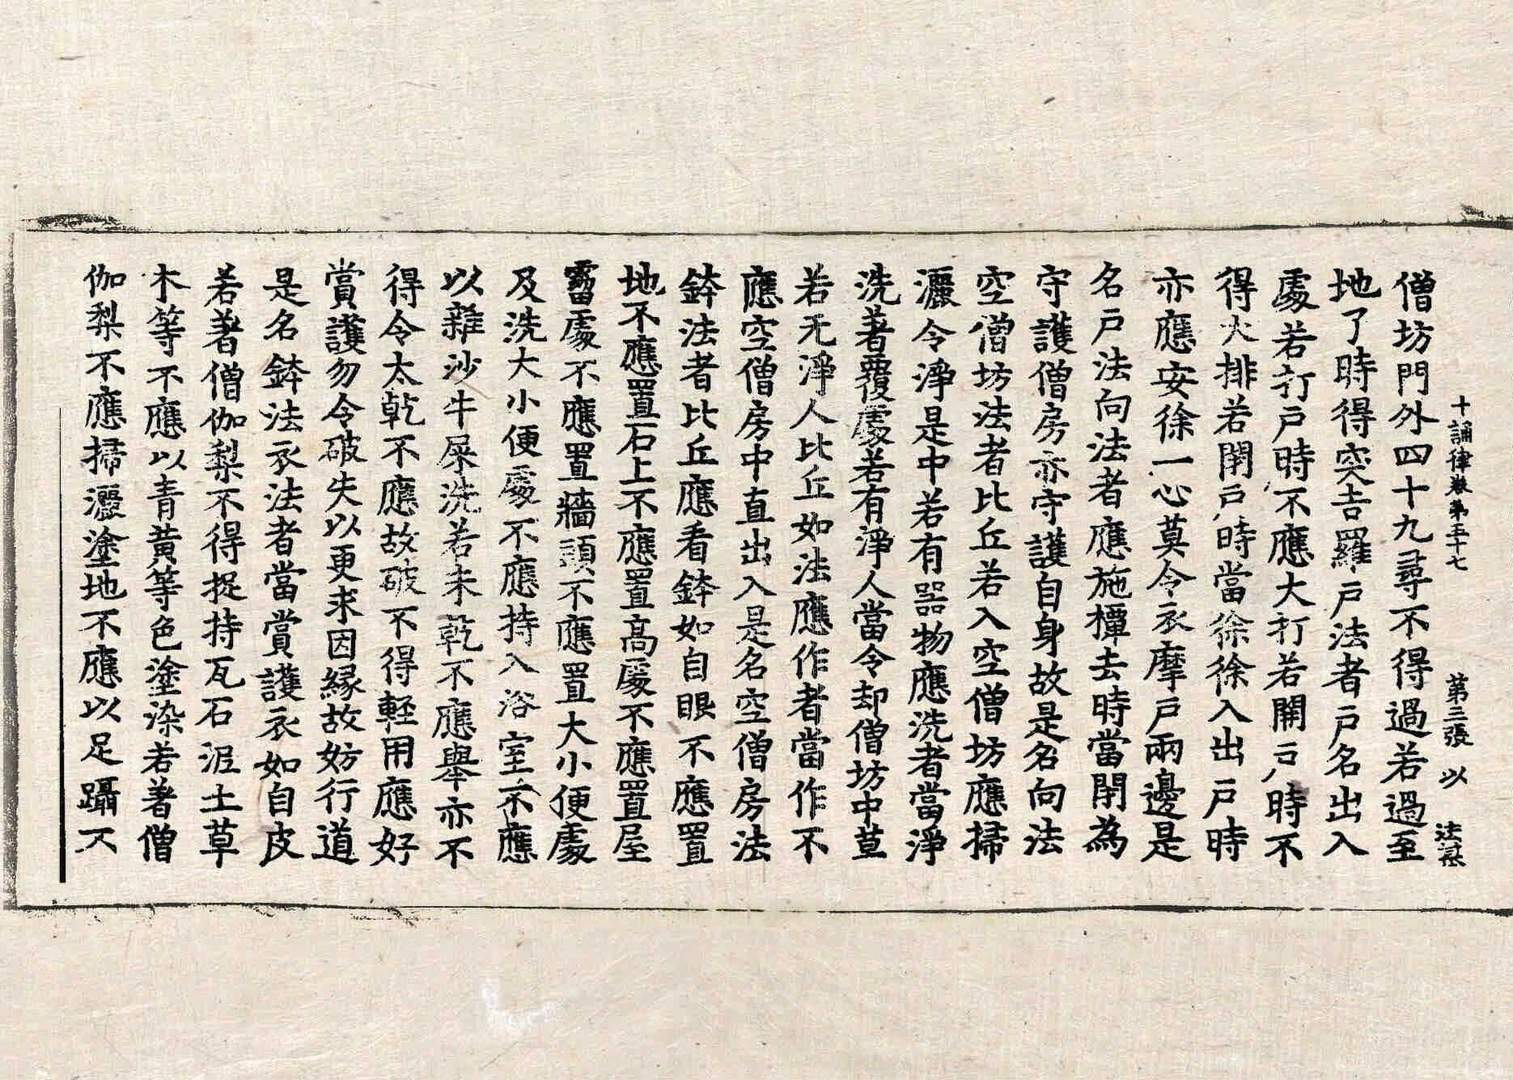 十誦律卷第五十七 第三張 以
僧坊門外四十九尋不得過若過至
地了時得突吉羅戶法者戶名出入
處若打戶時不應大打若開戶時不
得大排若閉戶時當徐徐入出戶時
亦應安徐一心莫令衣摩戶兩邊是
名戶法向法者應施橝去時當閉為
守護僧房亦守護自身故是名向法
空僧坊法者比丘若入空僧坊應掃
灑令淨是中若有器物應洗者當淨
洗著覆處若有淨人當令却僧坊中草
若无淨人比丘如法應作者當作不
應空僧房中直出入是名空僧房法
鉢法者比丘應看鉢如自眼不應置
地不應置石上不應置高處不應置屋
霤處不應置牆頭不應置大小便處
及洗大小便處不應持入浴室不應
以雜沙牛屎洗若未乾不應舉亦不
得令太乾不應故破不得輕用應好
賞護勿令破失以更求因緣故妨行道
是名鉢法衣法者當賞護衣如自皮
若著僧伽梨不得捉持瓦石泥土草
木等不應以青黃等色塗染若著僧
伽梨不應掃灑塗地不應以足躡不